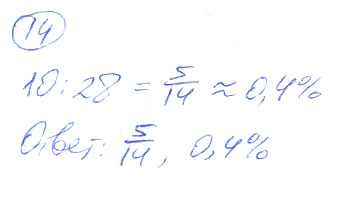 14
10 : 28 = 5/14 ≈ 0,4%
Ответ: 5/14, 0,4%